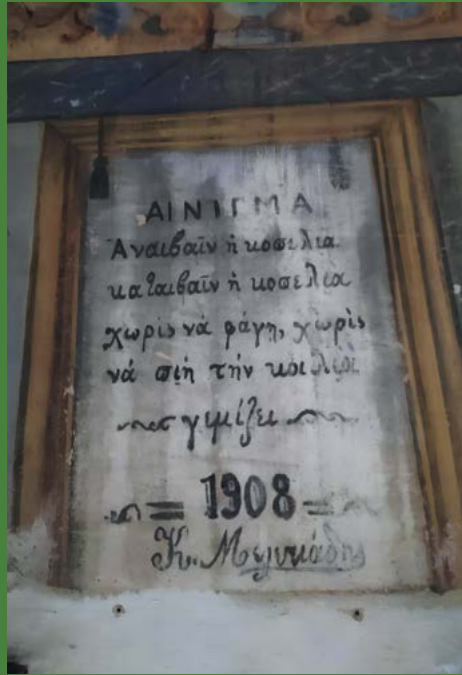 ΑΙΝΙΓΜΑ
Ἀναιβαῖν ἡ κοπελιά
καταιβαῖν ἡ κοπελιά
χωρὶς νὰ φάγῃ, χωρὶς
νὰ πιῇ τὴν κοιλιὰ
γιμίζει
1908
Κ.